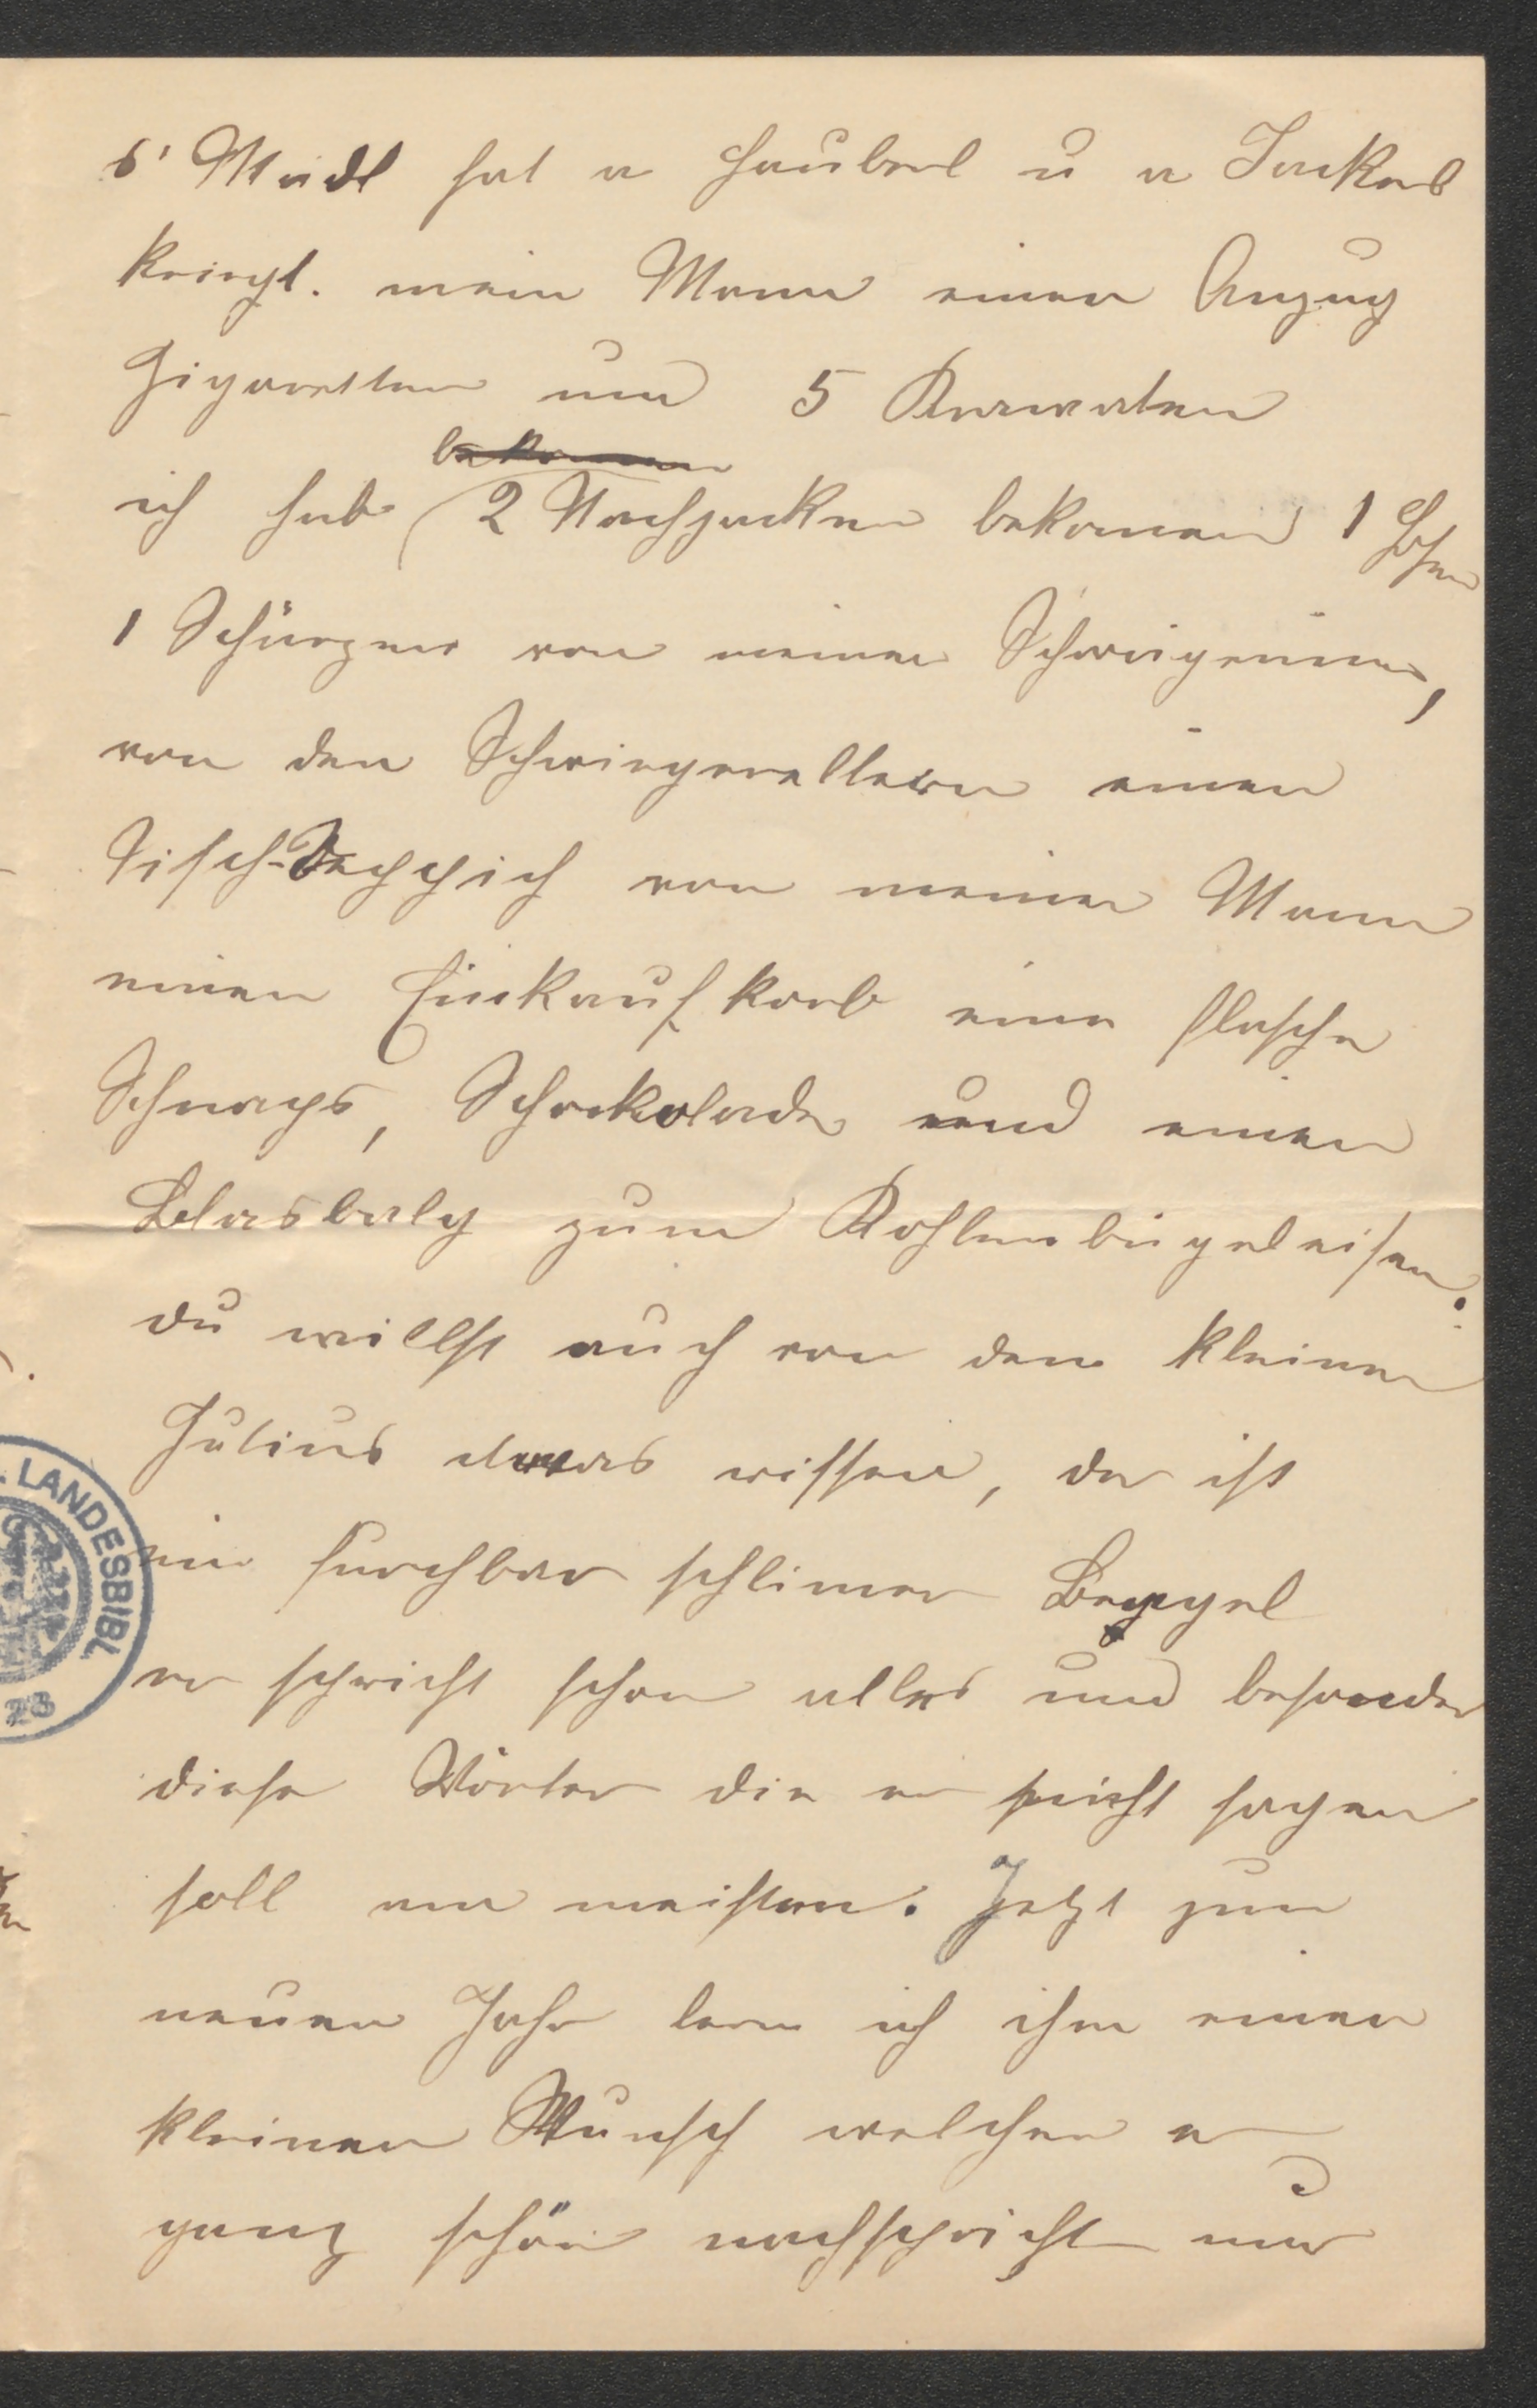 s' Madl hat a Hauberl u a Jackerl
kriegt. mein Mann einen Anzug
Zigaretten und 5 Krawaten
bekomen
ich hab 2 Nachjacken bekomen 1 Hosen
1 Schürzen von meiner Schwigerinn,
von den Schwiegerelltern einen
Tisch-Teppich von meinen Mann
einen Einkaufkorb eine flasche
Schnaps, Schokolade und einen
Blasbalg zum Kohlenbügeleisen.
du willst auch von den kleinen
Julius etwas wissen, der ist
ein furchbar schlimer Bengel
er spricht schon alles und besonder
diese Wörter die er nicht sagen
soll am meisten. Jetzt zum
neuen Jahr lern ich ihm einen
kleinen Wunsch welchen er
ganz schön nachspricht nur
LANDESBIBL